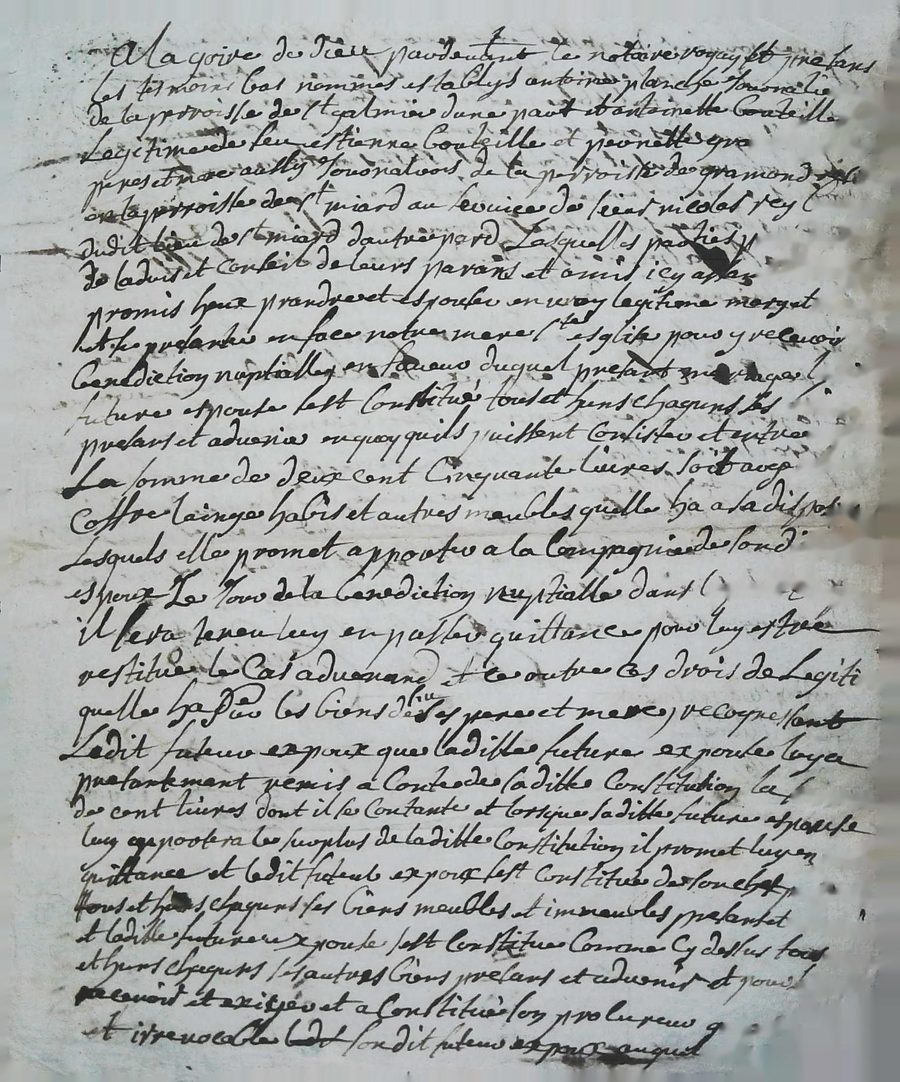 A la goire de dieu pardeuant le notaire royal et presans
les tesmoins bas nommes establys antoine planche Journalie
de la parroisse de st galmier dune part et antoinette Couteille
Legitime de feu estienne Couteille et pernette gra
peres et mere aussy Journaliers de la parroisse de gramond
en la parroisse de st miard au seruice de sieur nicolas rey
dudit lieu de st miard dautre pard Lesquelles parties
de laduis et Conseil de leurs parans et amis icy
promis heux prandre et espouser en vray legitime maryet
et se presanter en face notre mere ste esglise pour y receuoir
benediction nuptialles en faueur duquel presant mariage
future espouse sest Constitué tous et huns chaguns ses
presans et aduenir en quoy quils puissent Consister et entre
La somme de deux cent Cinquante liures soit auec
Coffre lainge habis et autres meubles quelle ha a sa dispos
Lesquels elle promet apporter a la Compagnie de sond
espoux Le Jour de la benediction nuptialle dans
il sera teneu luy en passer quittance pour luy estre
restitue le Cas aduenand et ce outre ces drois de Legiti
quelle ha sur les biens de ses pere et mere recognessant
Ledit futeur expoux que laditte future expouse luy a
presantement remis a Conte de saditte Constitution la
de cent liures dont il se Contante et lorsque saditte future espouse
luy apportera le surplus de laditte Constitution il promet luy en
quittance et ledit futeur expoux sest Constitue de son chef
tous et huns chaguns ses biens meubles et immeubles presant et
et laditte future expouse sest Constitue Comme Cy dessus tous
et huns chaguns ses autres biens presans et aduenir et pour
receuoir et exiger et a Constitué son procureur
et irreuocable ledit sondit futeur expoux auquel